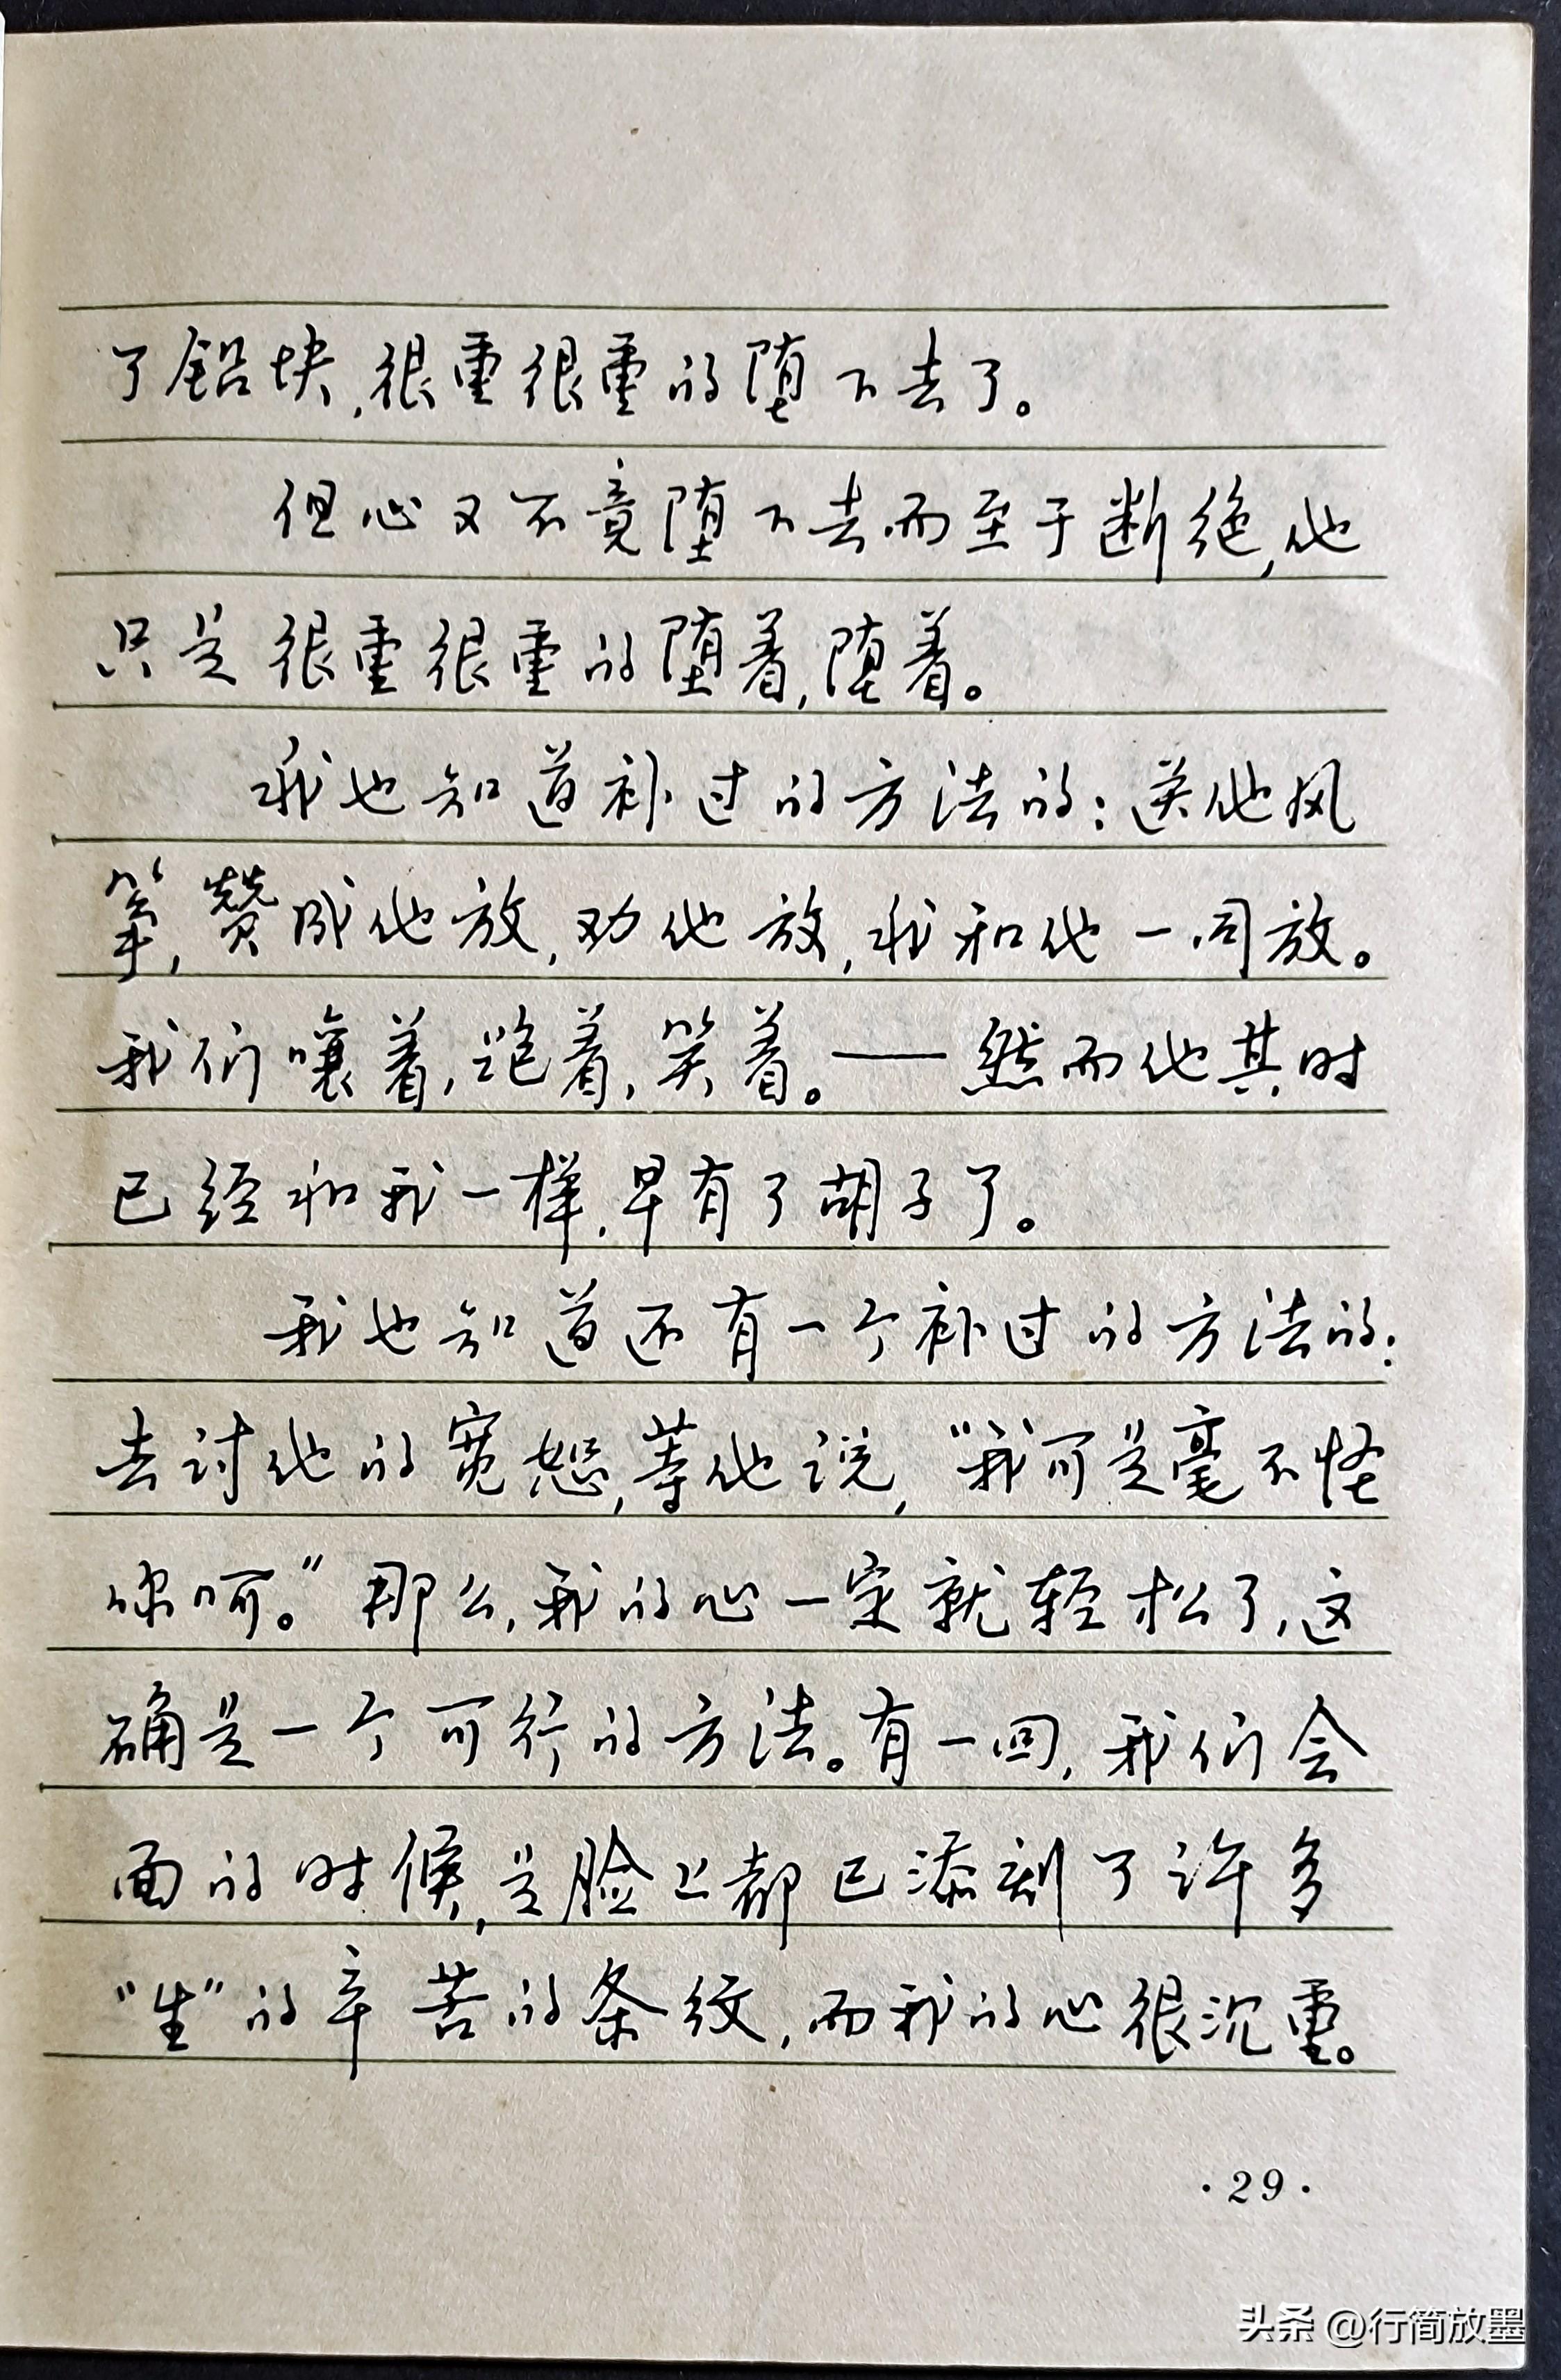 了铅块,很重很重的堕下去了。
但心又不竟堕下去而至于断绝,他
只是很重很重的堕着,堕着。
我也知道补过的方法的:送他风
筝,赞成他放,劝他放,我和他一同放。
我们嚷着,跑着,笑着。——然而他其时
已经和我一样,早有了胡子了。
我也知道还有一个补过的方法的:
去讨他的宽恕,等他说,“我可是毫不怪
你呵。”那么,我的心一定就轻松了,这
确是一个可行的方法。有一回,我们会
面的时候,是脸上都已添刻了许多
“生”的辛苦的条纹,而我的心很沉重。
·29·
头条 @行简放墨